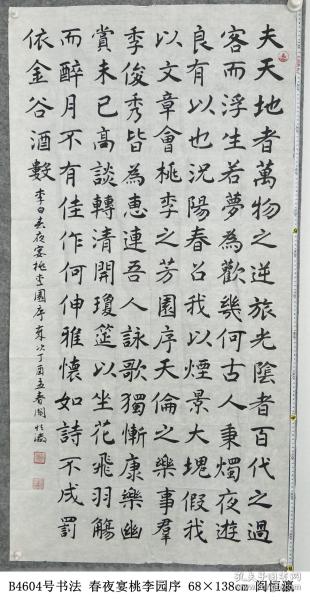 夫天地者萬物之逆旅光陰者百代之過
客而浮生若夢為歡幾何古人秉燭夜遊
良有以也況陽春召我以煙景大塊假我
以文章會桃李之芳園序天倫之樂事群
季俊秀皆為惠連吾人詠歌獨慚康樂幽
賞未已高談轉清開瓊筵以坐花飛羽觴
而醉月不有佳作何伸雅懷如詩不成罰
依金谷酒數
李白春夜宴桃李園序歲次丁酉孟春閻恒瀛
B4604号书法 春夜宴桃李园序 68×138cm 阎恒瀛